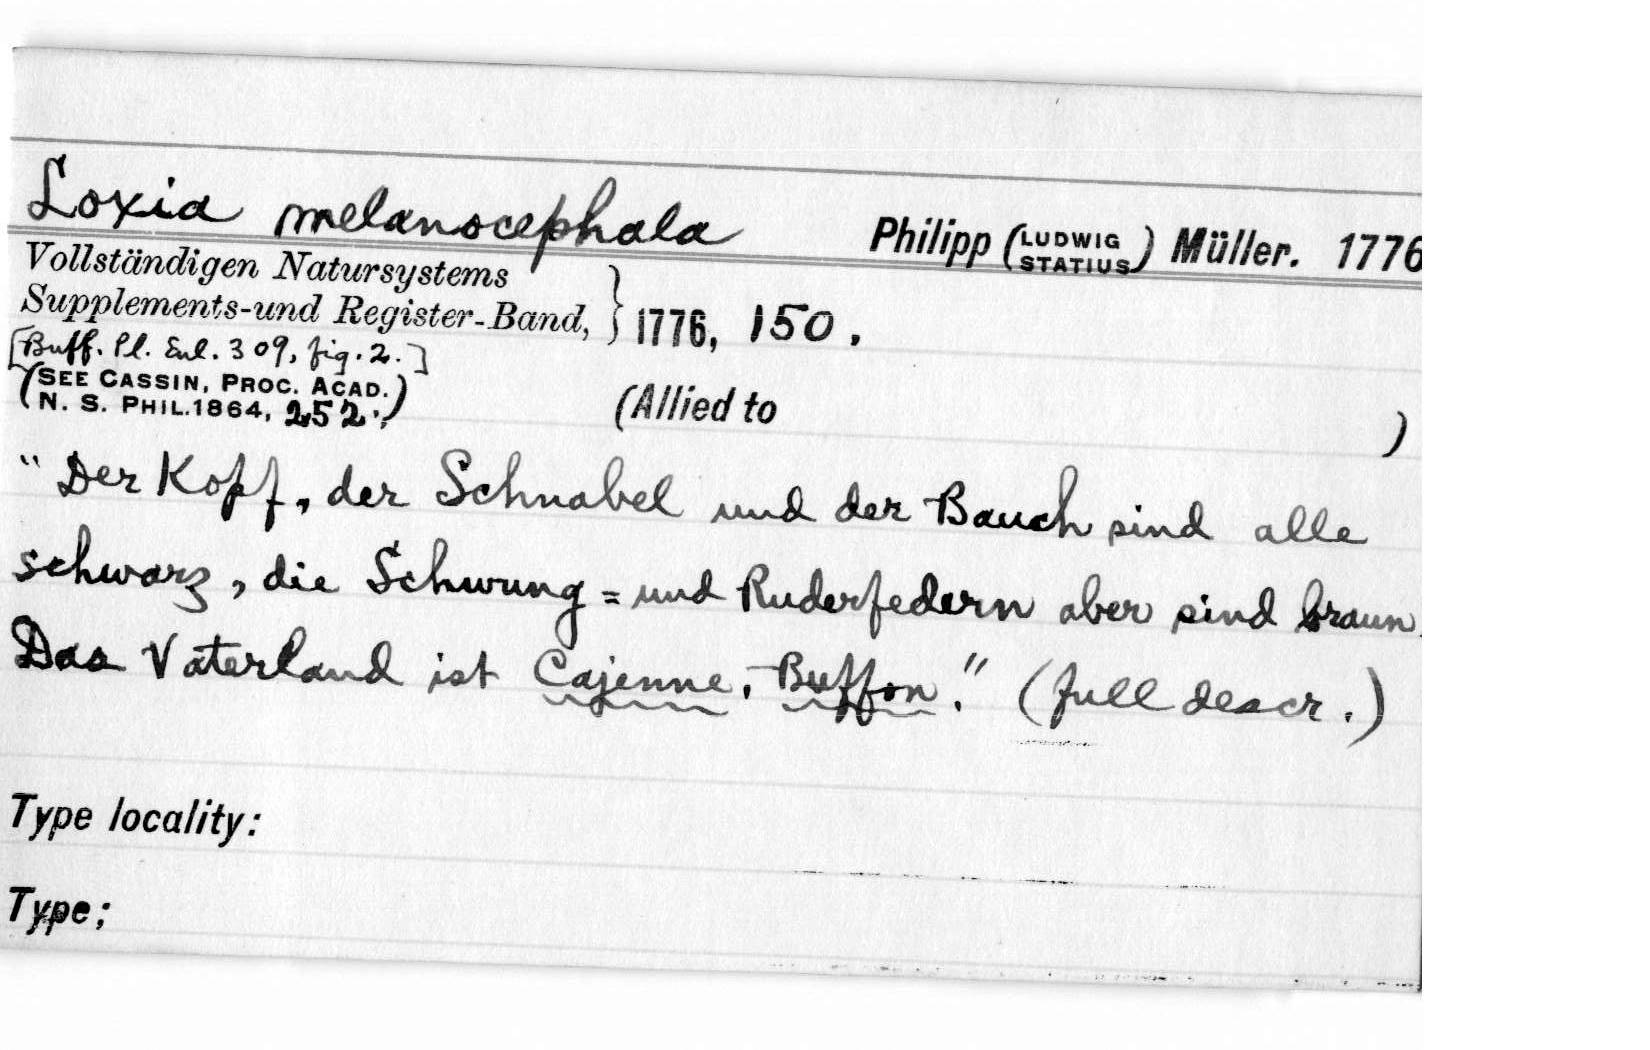 Loxia melanocephala Philipp (LUDWIG STATIUS) Müller. 1776
Vollständigen Natursystems
Supplements-und Register-Band, } 1776, 150.
[Buff. Pl. Enl. 309, fig. 2.]
(SEE CASSIN, PROC. ACAD.
N. S. PHIL. 1864, 252.) (Allied to )
"Der Kopf, der Schnabel und der Bauch sind alle
schwarz, die Schwung = und Ruderfedern aber sind braun.
Das Vaterland ist Cajenne. Buffon." (full descr.)
Type locality:
Type;